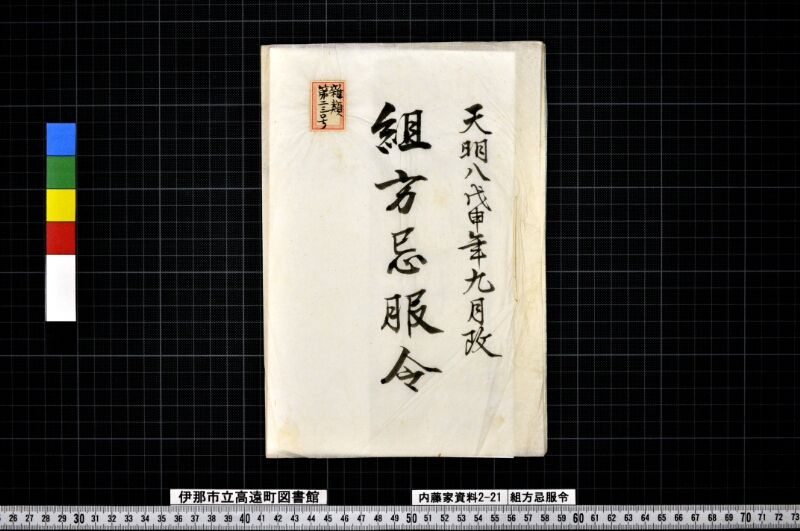 天明八戊申年九月改
組方忌服令
雑類
第二三号
伊那市立高遠町図書館
内藤家資料2-21 組方忌服令
26 27 28 29 30 31 32 33 34 35 36 37 38 39 40 41 42 43 44 45 46 47 48 49 50 51 52 53 54 55 56 57 58 59 60 61 62 63 64 65 66 67 68 69 70 71 72 73